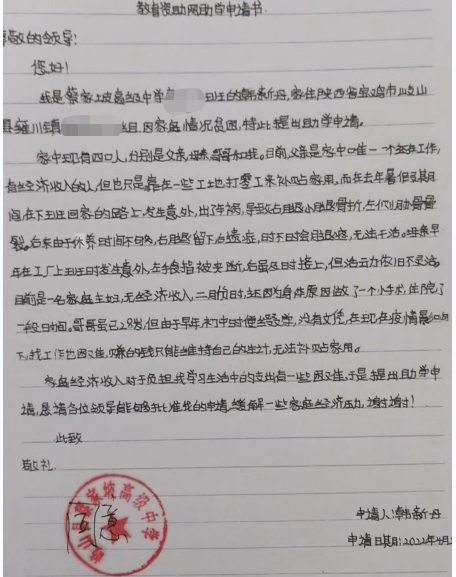 教育资助网助学申请书
尊敬的领导:
您好!
我是蔡家坡高级中学高 班的韩新丹,家住陕西省宝鸡市岐山
县雍川镇 组,因家庭情况贫困,特此提出助学申请。
家中现有四口人,分别是父亲,母亲,哥哥和我。目前,父亲是家中唯一一个在工作,
有经济收入的人,但也只是靠在一些工地打零工来补贴家用,而在去年暑假某日
间,在下班回家的路上,发生意外,出了车祸,导致右腿小腿骨折,左侧肋骨骨
裂。后来由于休养时间不够,右腿留下后遗症,时不时会腿疼,无法干活。母亲早
年在工厂上班时发生意外,左手食指被夹断,后虽及时接上,但活动力依旧不灵活。
目前是一名家庭主妇,无经济收入,二月份时,还因为身体原因做了一个小手术,住院了
一段时间。哥哥虽已28岁,但由于早年初中时便辍学,没有文凭,在现在疫情影响
下,找工作也困难,赚的钱只能维持自己的生计,无法补贴家用。
家庭经济收入对于负担我学习生活中的支出有一些困难,于是提出助学申
请,恳请各位领导能够批准我的申请,缓解一些家庭经济压力,谢谢!
此致
敬礼
岐山县蔡家坡高级中学
申请人:韩新丹
申请日期:2022年4月